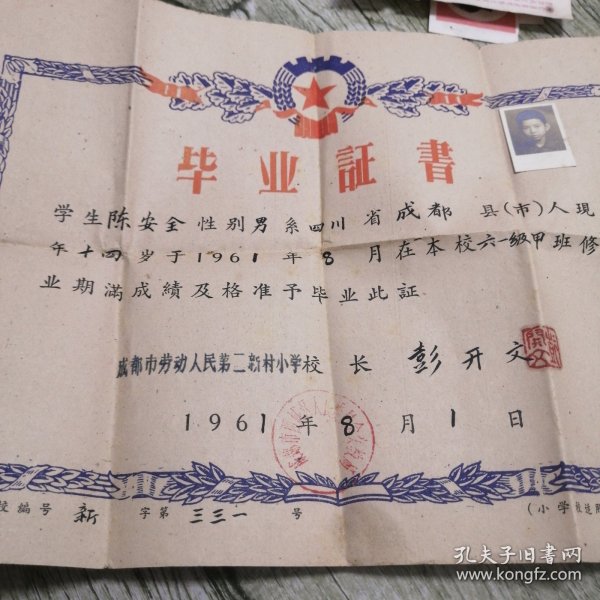 毕业証書
学生陈安全性别男系四川省成都县(市)人现
年十四岁于1961年8月在本校六一级甲班修
业期滿成績及格准予毕业此証
成都市劳动人民第二新村小学校长 彭开文
1961年8月1日
校編号 新字第三三一号
(小学
孔夫子旧書网
www.kongfz.com